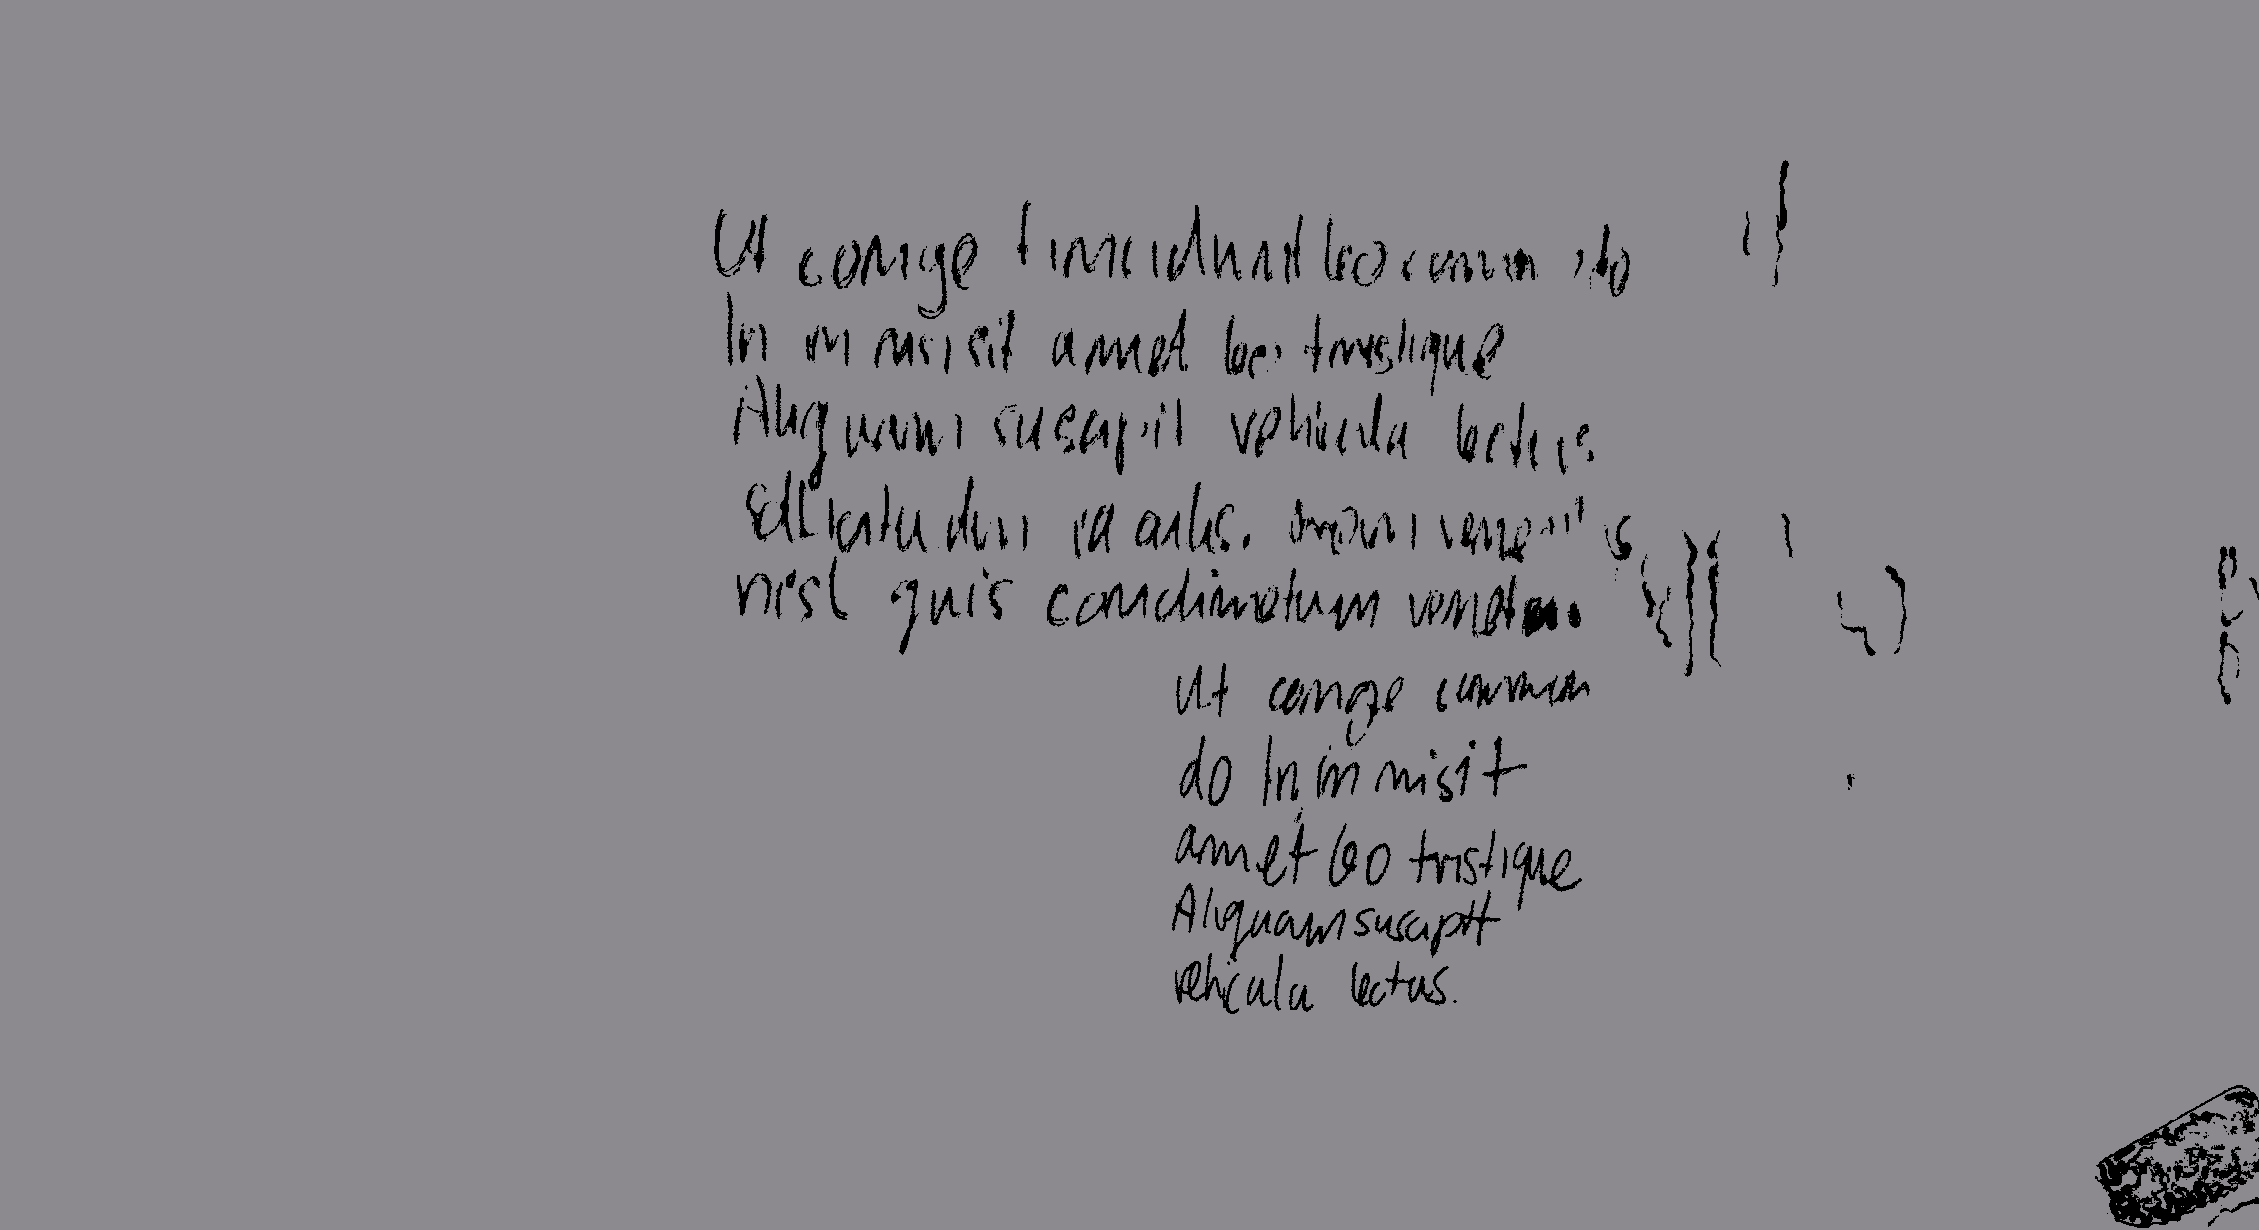 Ut conge tincidunt leo commodo
In in nisi sit amet leo tristique
Aliquam suscipit vehicula lectus
sollicitudin id odio. venenatis
nisl quis condimetum
Ut conge common
do In in nisi sit
amet leo tristique
Aliquam suscipit
vehicula lectus.